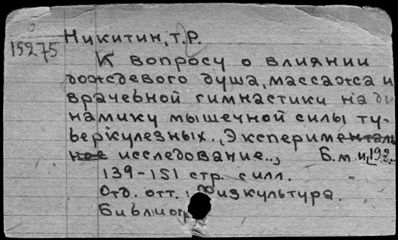 15275
Никитин, Т.Р.
К вопросу о влиянии
дождевого душа, массажа и
врачебной гимнастики на ди
намику мышечной силы ту-
беркулезных. „Эксперименталь
ное исследование..„ Б.м. и, 192
139-151 стр. с илл.
Отд. отт.: Физкультура.
Библиогр